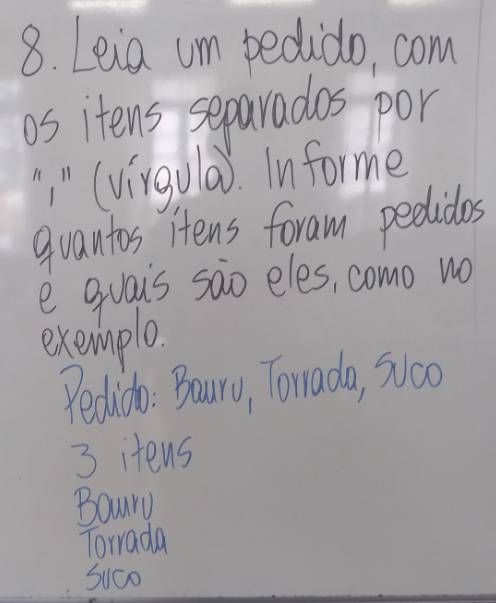 8. Leia um pedido, com
os itens separados por
"," (vírgula). Informe
quantos itens foram pedidos
e quais são eles, como no
exemplo.
Pedido: Bauru, Torrada, Suco
3 itens
Bauru
Torrada
Suco